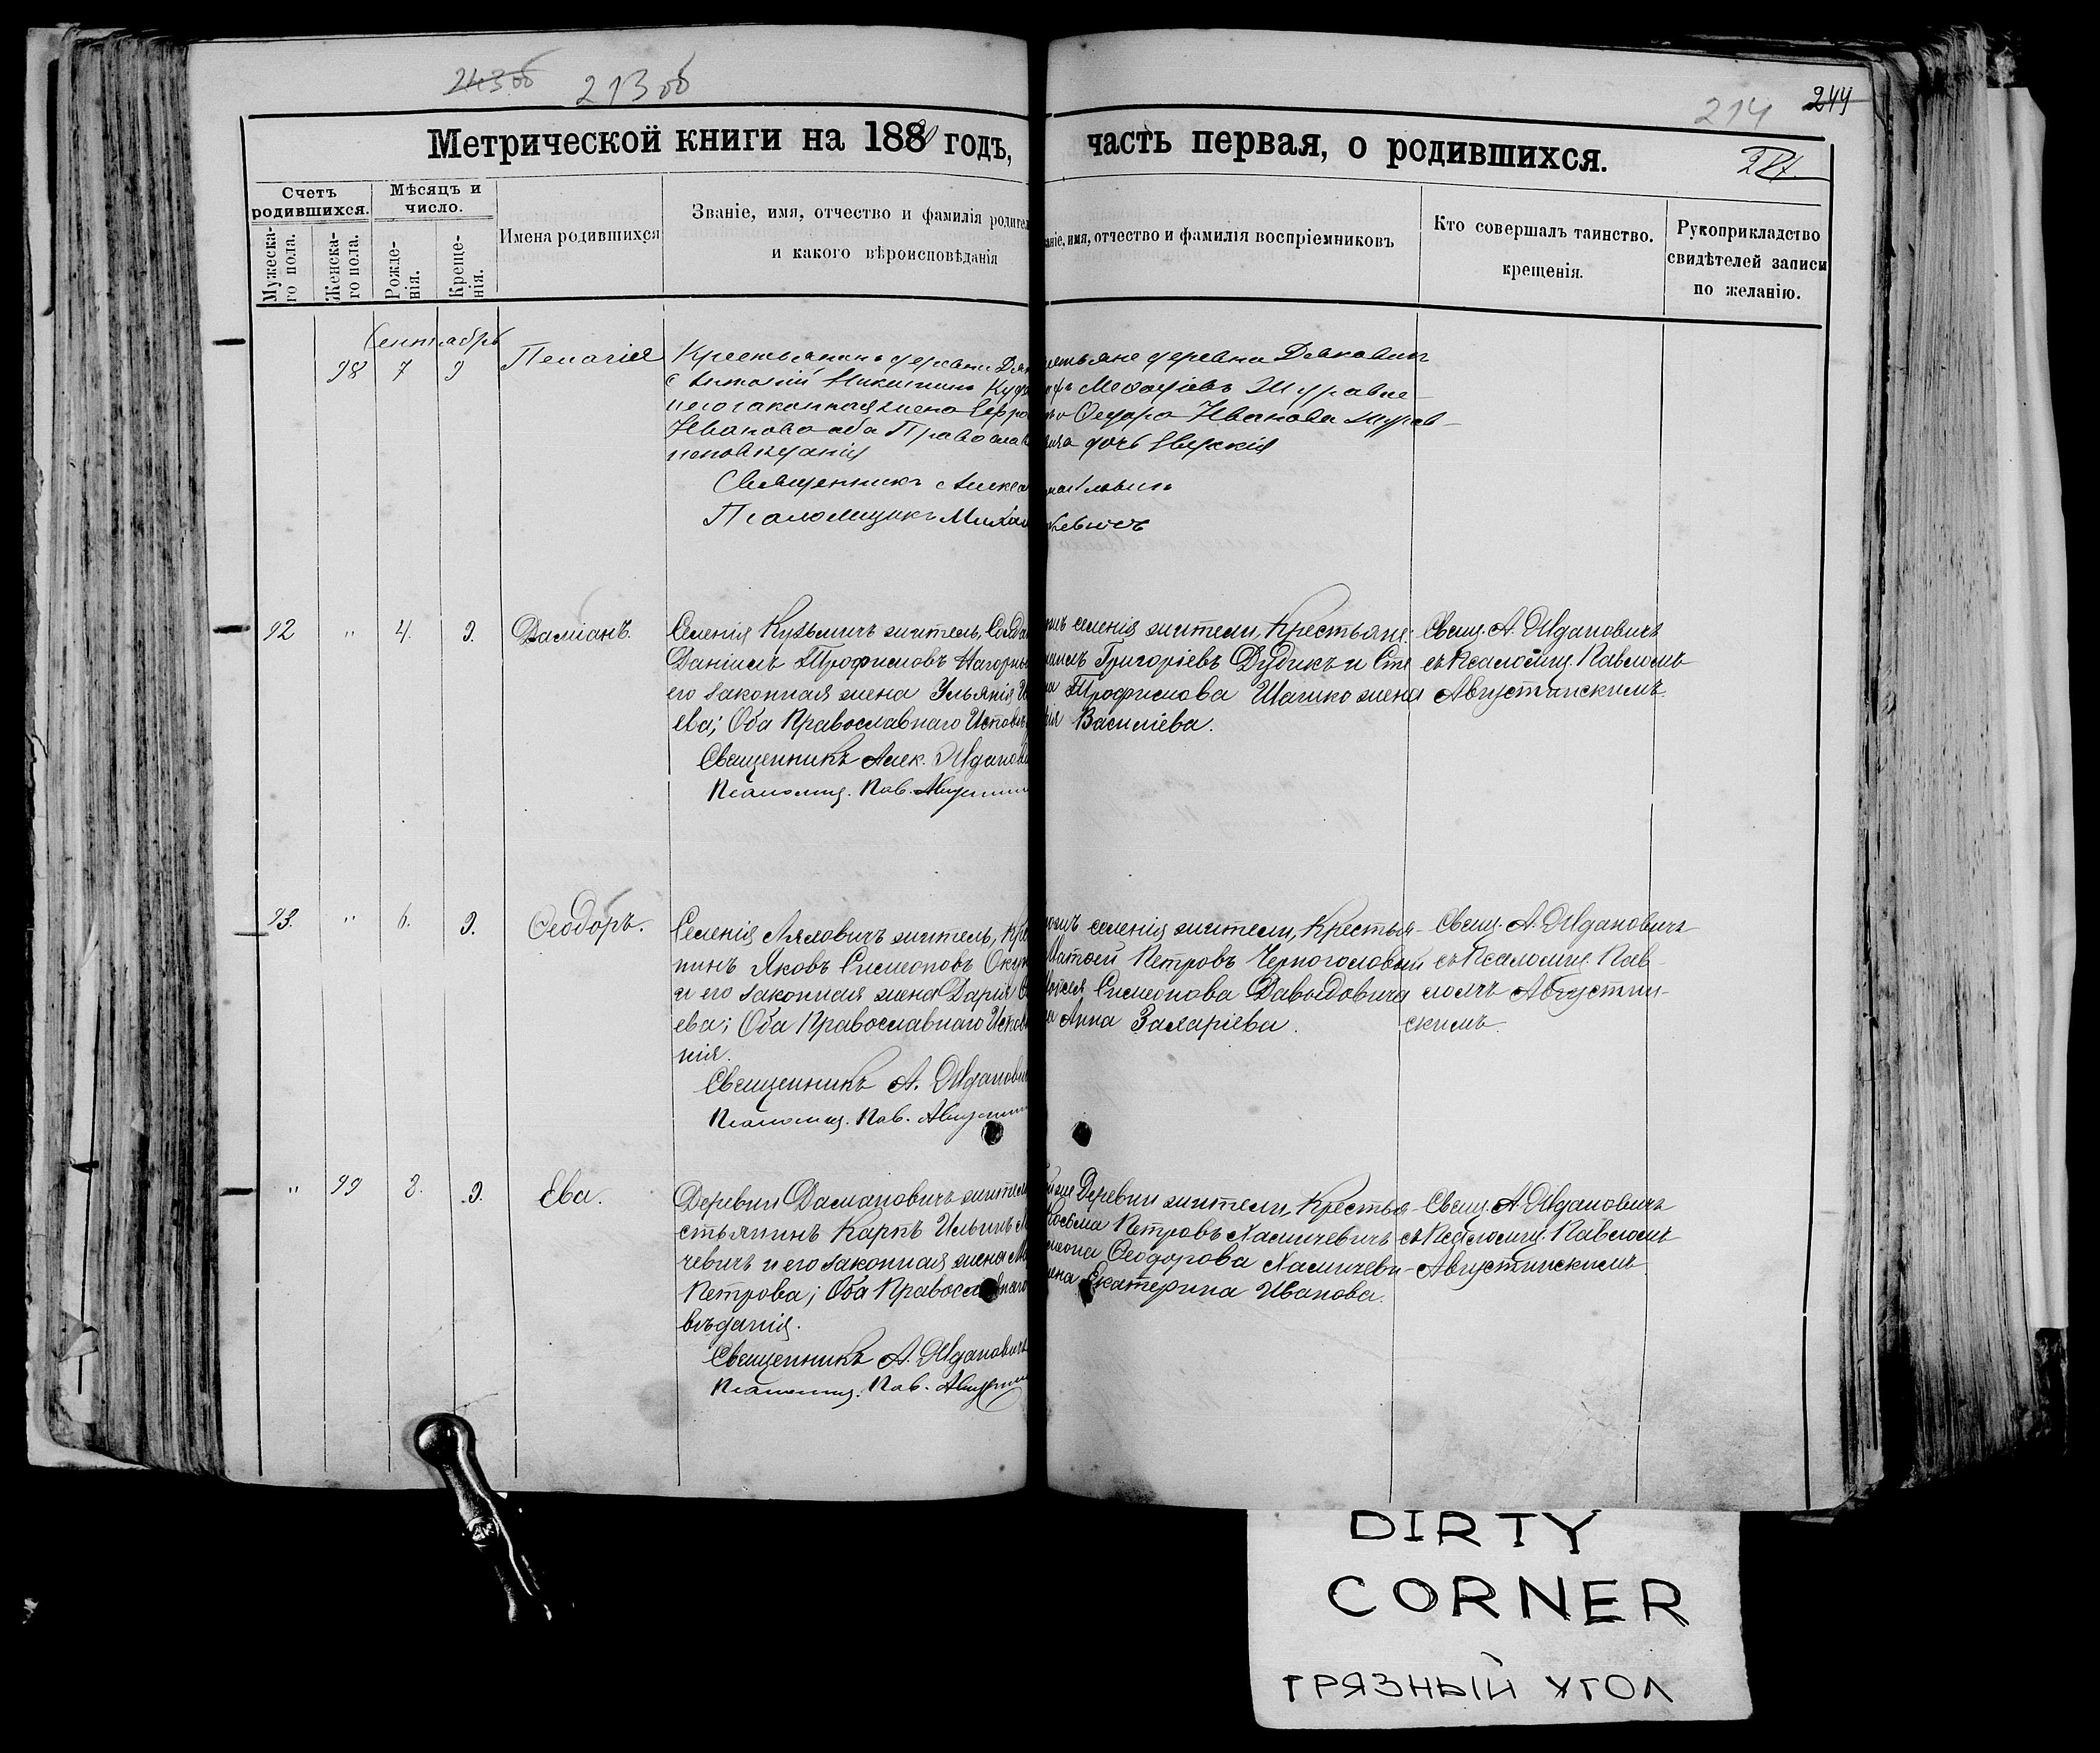 243 об 213 об
214 244
Метрической книги на 1880 годъ, часть первая, о родившихся.
Счетъ родившихся.
Мѣсяцъ и число.
Мужеска-го пола.
Женска-го пола.
Рожде-нія.
Креще-нія.
Имена родившихся
Званіе, имя, отчество и фамилія родител
и какого вѣроисповѣданія
аніе, имя, отчество и фамилія воспріемниковъ
Кто совершалъ таинство.
крещенія.
Рукоприкладство
свидѣтелей записи
по желанію.
Сентябрь
98 7 9 Пелагія
Крестьянинъ деревни
Антоній Никитинъ
его законная жена Евфро
Иванова оба Православ
исповѣданія
Священникъ Алекса
Псаломщикъ Миха
стьяне деревни
Ѳедора Иванова
дочь Евдокія
92 " 4. 9. Даміанъ.
Селенія Кузьмичъ житель, Солда
Даніилъ Трофимовъ Нагорны
его законная жена Ульянія
ева; Оба Православнаго Исповѣ
Священникъ Алек. Ждонови
Псаломщ. Пав. Августин
селенія жители, Крестьяне:
Григоріевъ Дудикъ и Сте
Трофимова Шашко жена
Василіева.
Свящ. А. Ждановичъ
съ Псаломщ. Павломъ
Августинскимъ.
93. " 6. 9. Ѳеодоръ.
Селенія Ляховичъ житель, Кре
нинъ Яковъ Симеоновъ Окун
и его законная жена Дарія
ева; Оба Православнаго Испов
нія.
Священникъ А. Жданови
Псаломщ. Пав. Августин
селенія жители, Крестья-
Матѳей Петровъ Черноголовый
Симеонова Давыдовича
Анна Захаріева.
Свящ. А. Ждановичъ
съ Псаломщ. Пав
ломъ Августин-
скимъ.
" 99 8. 9. Ева.
Деревни Дамановичъ жител
стьянинъ Карпъ Ильинъ
чевичъ и его законная жена
Петрова; Оба Православнаго
вѣданія.
Священникъ А. Ждановичъ
Псаломщ. Пав. Августин
же Деревни жители, Крестья-
Косьма Петровъ Хамичевичъ
Ѳеодорова Хамичеви-
Екатерина Иванова.
Свящ. А. Ждановичъ
съ Псаломщ. Павломъ
Августинскимъ
DIRTY
CORNER
ГРЯЗНЫЙ УГОЛ